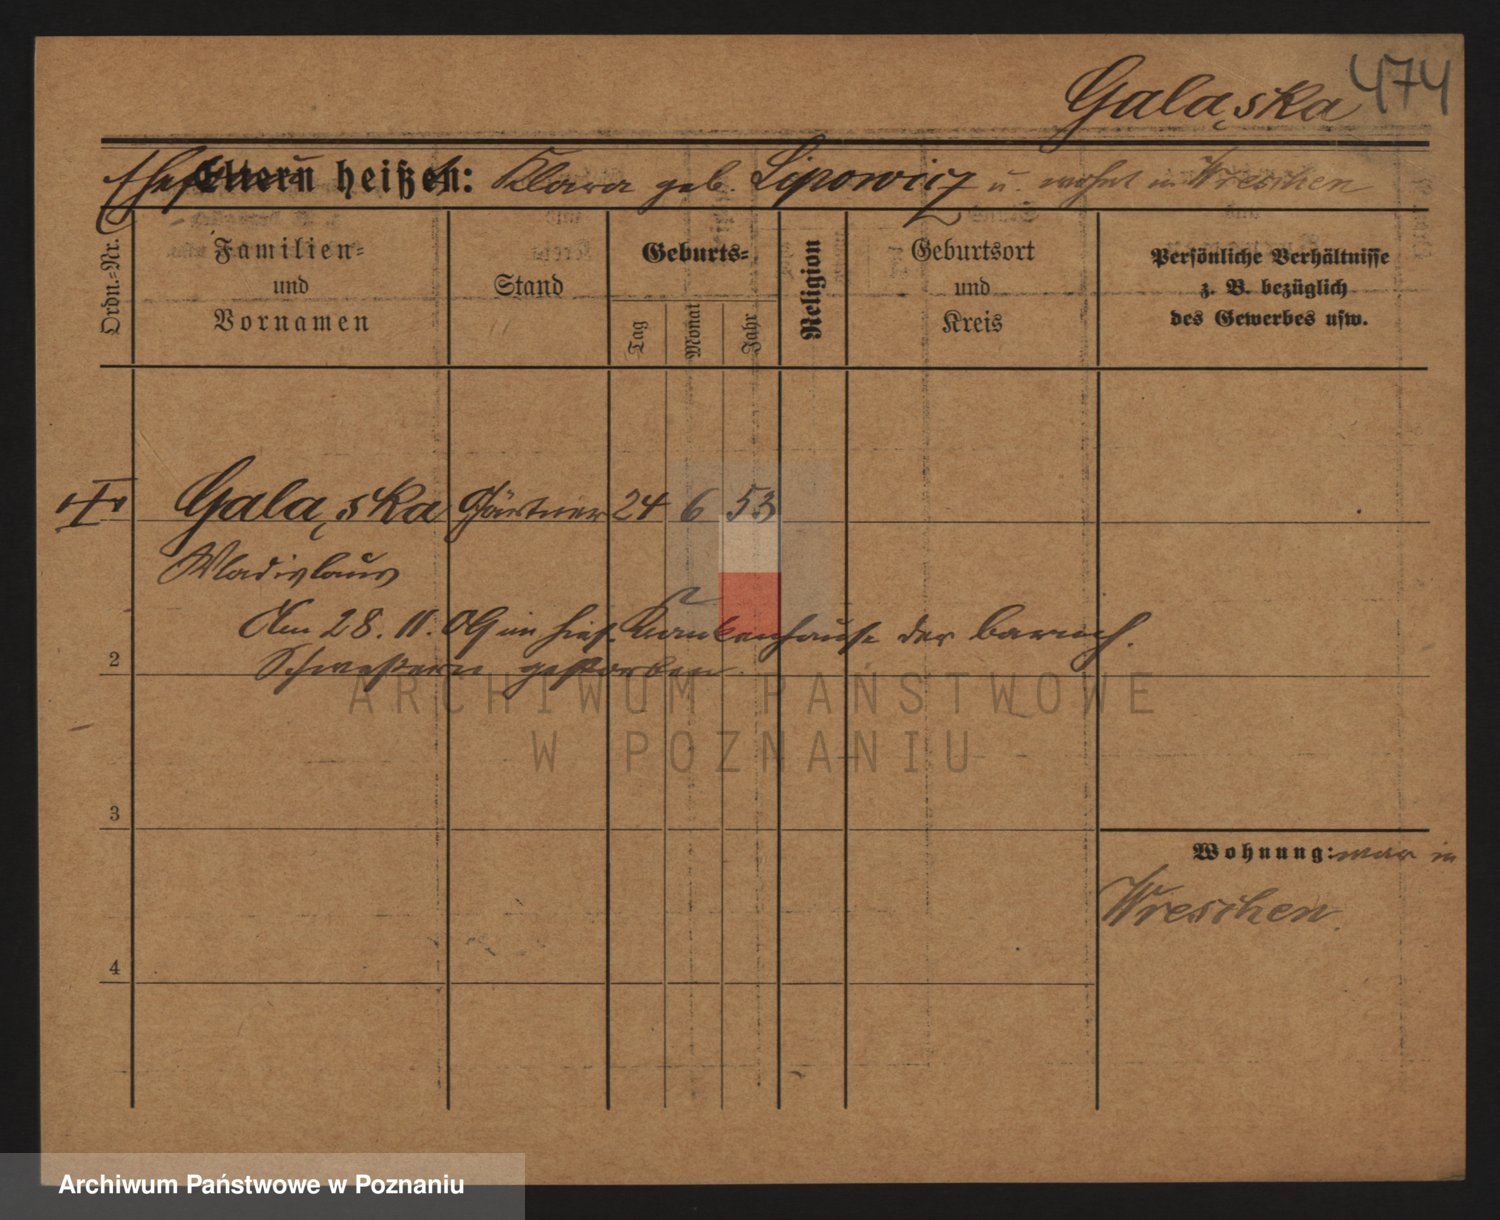 Galąska 474
Ehefrau heißt: Klara geb. Lipowicz u. wohnt in Wreschen
Eltern heißen:
Ordn.-Nr.
Familien=
und
Vornamen
Stand
Geburts=
Tag
Monat
Jahr
Religion
Geburtsort
und
Kreis
Persönliche Verhältnisse
z. B. bezüglich
des Gewerbes usw.
Galąska Gärtner 24 6 53
Wladislaus
Am 28.11.09 im hies. Krankenhause der barmh.
2
Schwestern gestorben.
ARCHIWUM PAŃSTWOWE
W POZNANIU
3
Wohnung: war in
Wreschen.
4
Archiwum Państwowe w Poznaniu